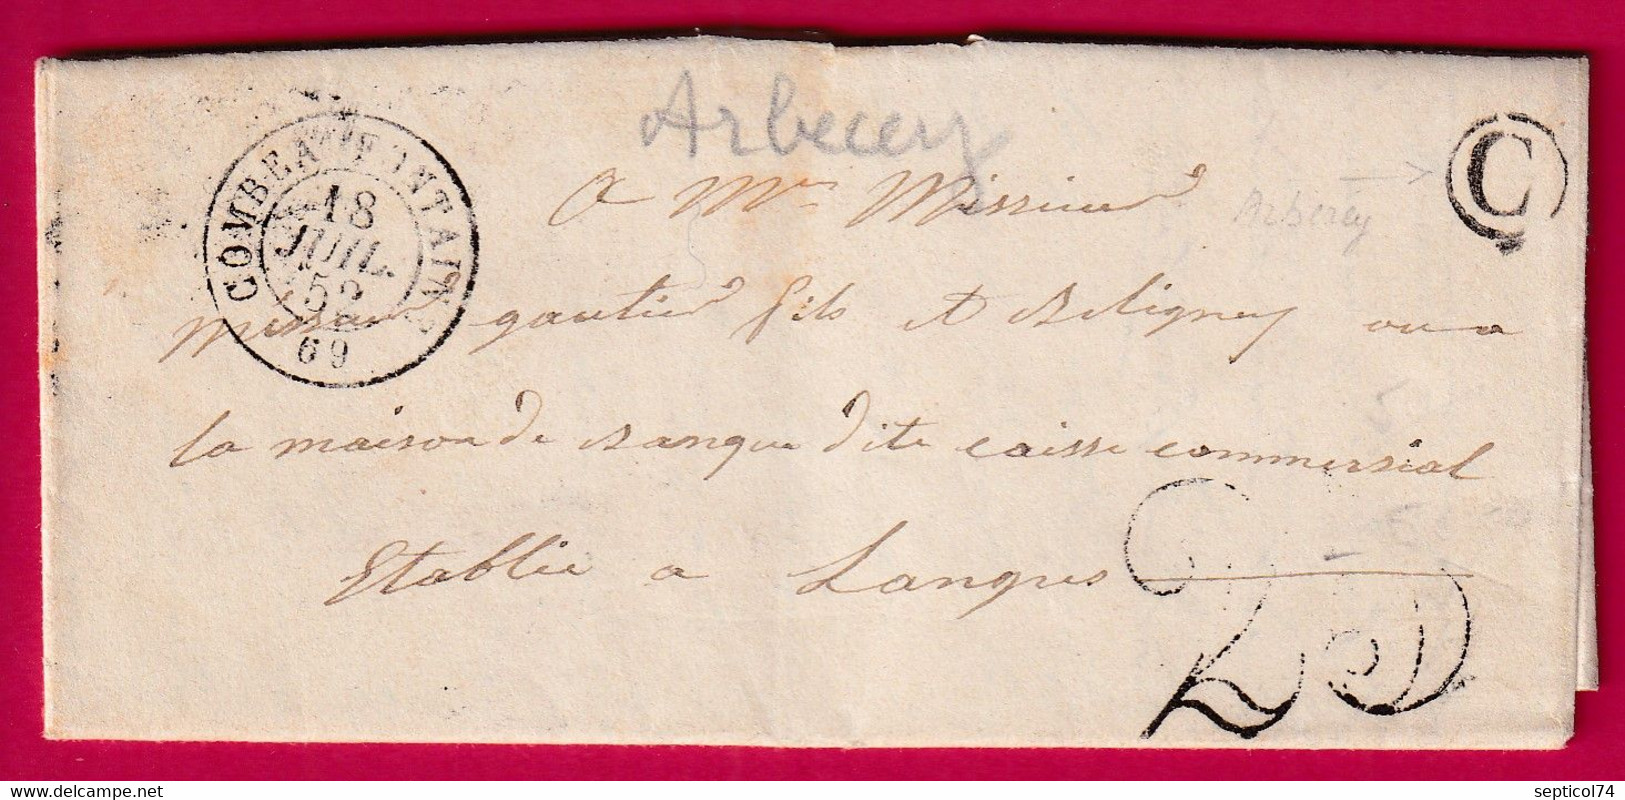 Arbecey
COMBEAUFONTAINE
18
JUIL.
52
69
C
Arbecey
A Mrs Missieurs
Messieurs gautier fils et Beligney ou a
la maison de Banque dite caisse commersial
Etablie a Langres
25
delcampe.net
septicol74